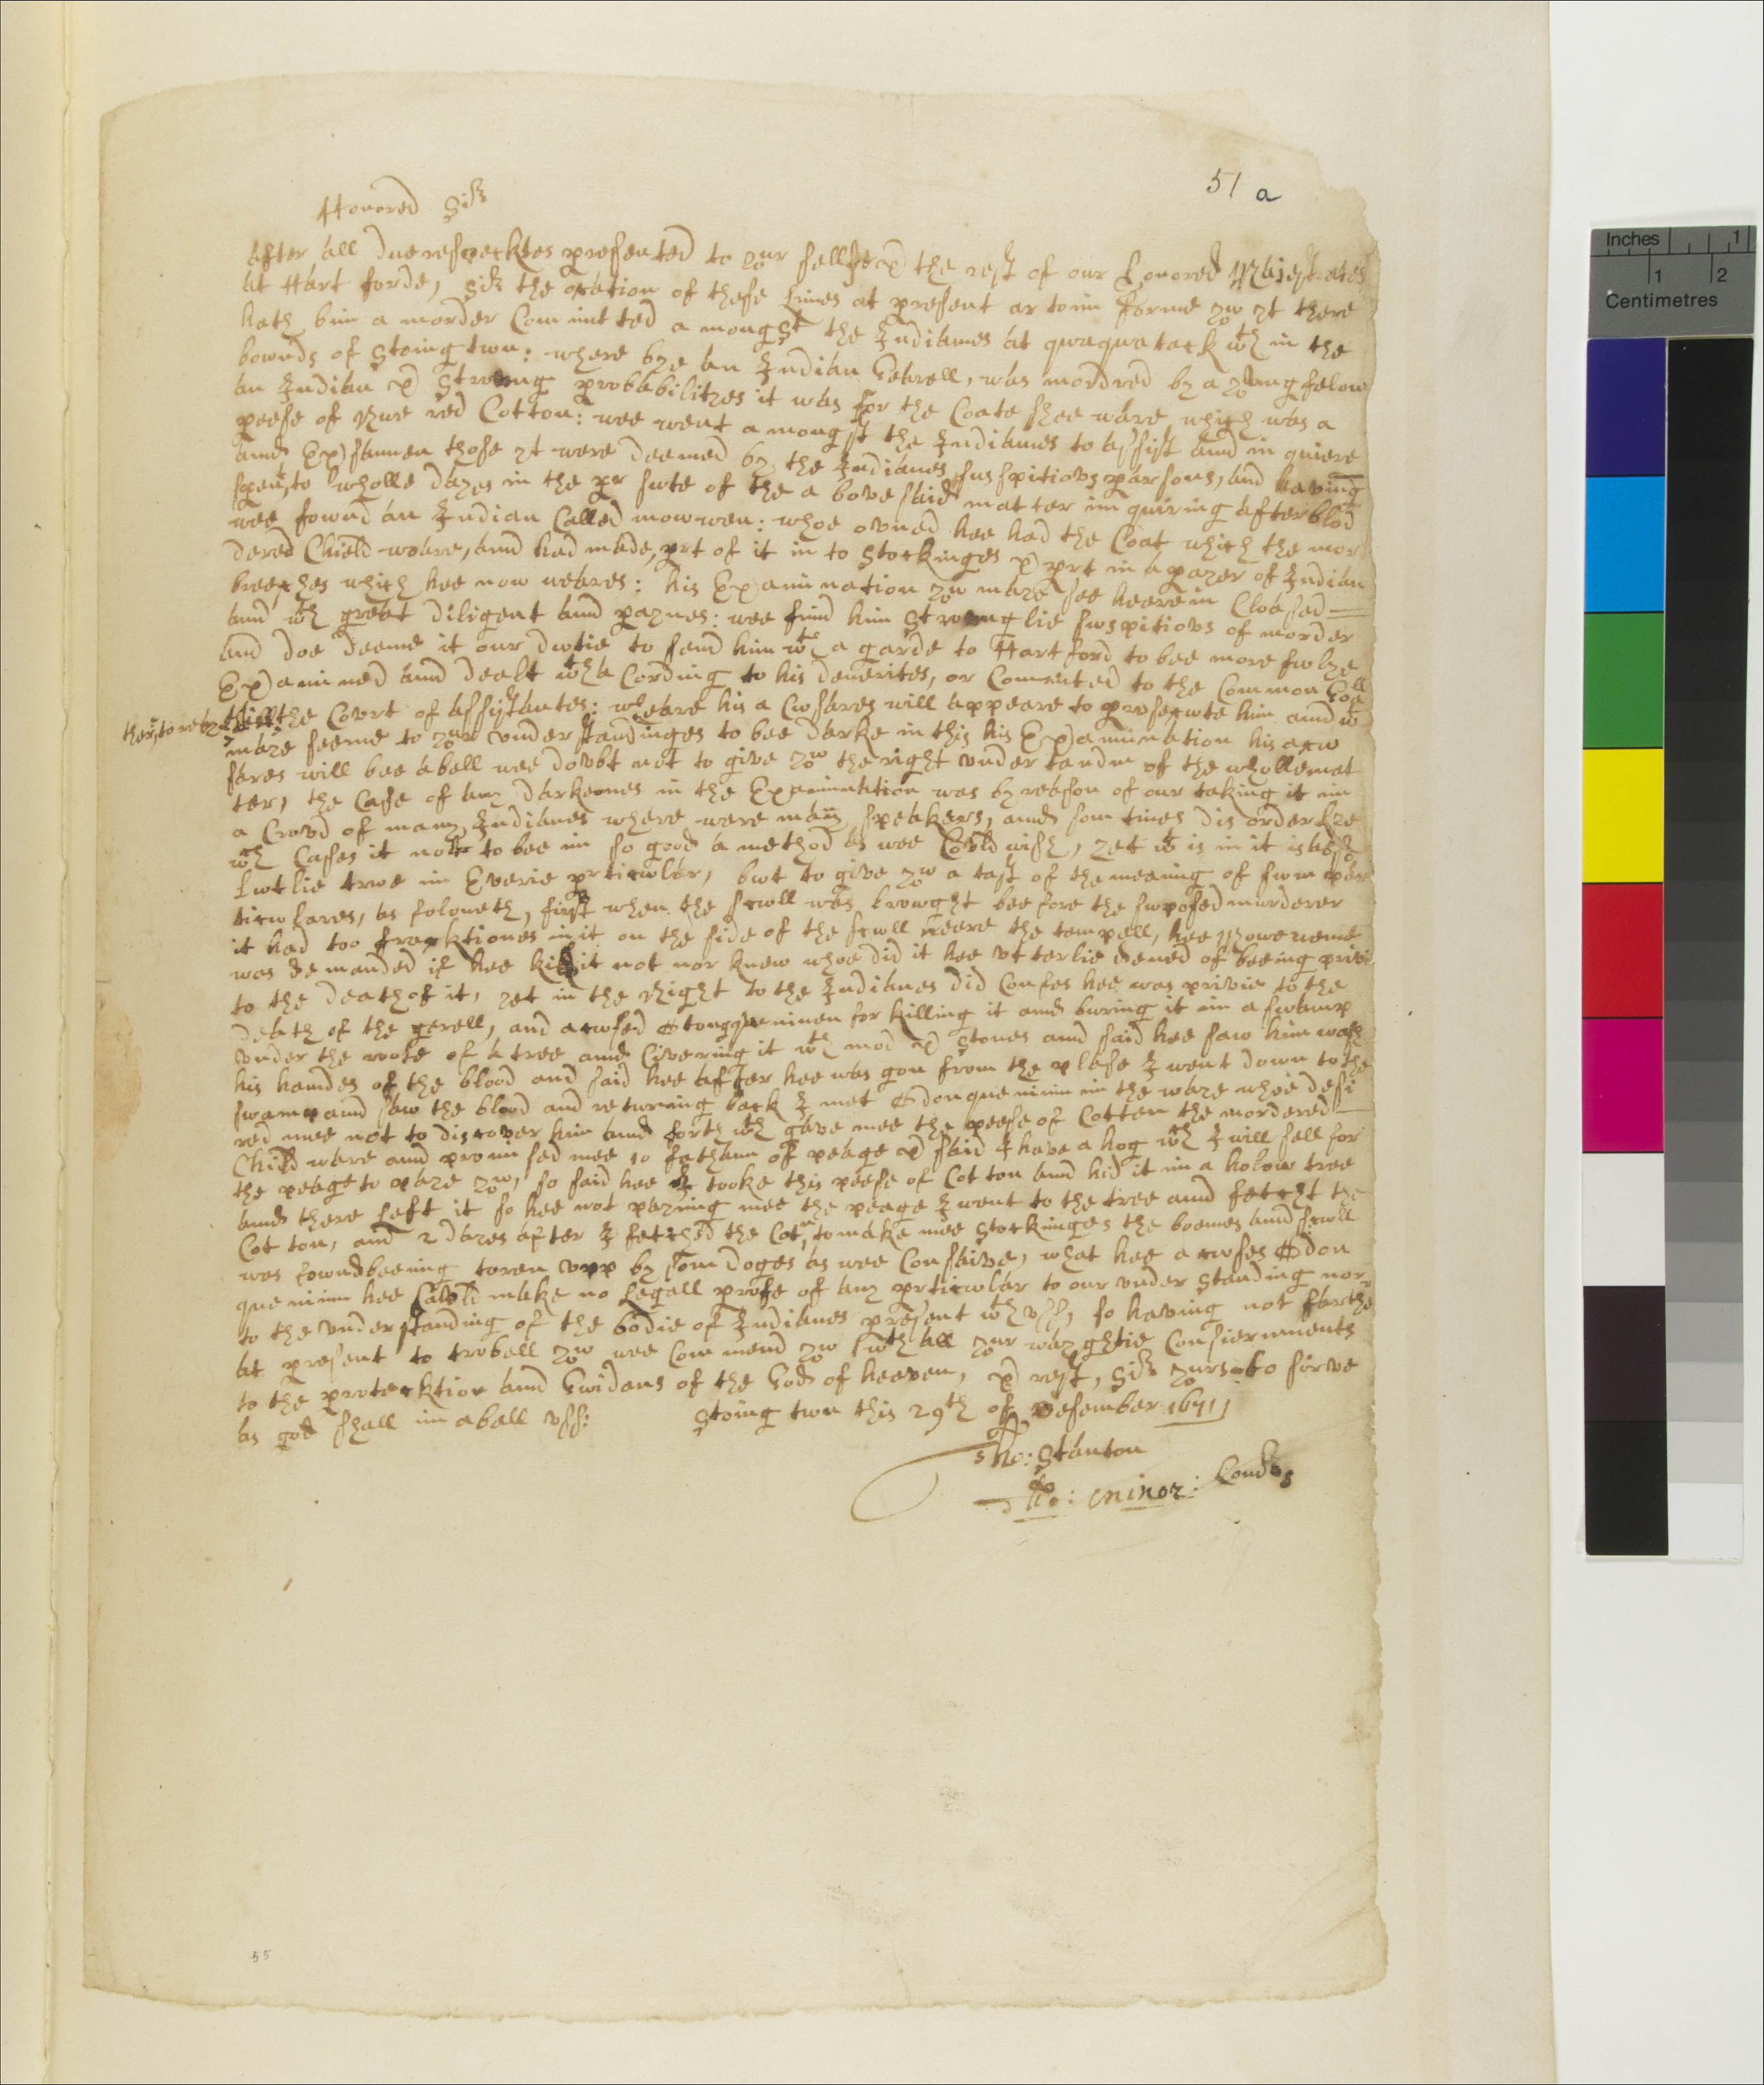 51 a
Honored Sir
After all due respecktes presented to yor sellfe & the rest of our honored Maiestrates
at Hart forde, Sir the ocation of these lines at present ar to in forme yow yt there
hath bin a morder Com mit ted a mongst the Indianes at quaquatack wch in the
bownds of Stoing twn: where bye an Indian Gearell, was mordred by a young felow
an Indian & Strong probabilityes it was for the Coate shee ware which was a
peese of Nwe red Cotton: wee went a mongst the Indianes to assist and in quiere
and Exsamen those yt were deemed by the Indianes susspitiovs parsons, and having
spent to wholle dayes in the pr swte of the a bove said mat ter in quiring after blod
wee fownd an Indian Called mowwen: whoe ovned hee had the Coat which the mor
dered Chield woare, and had made, prt of it in to Stockinges & prt in a payer of Indian
breeches which hee now weares: his Examination yow maye see heere in Cloased
and wth great diligent and paynes: wee find him Strong lie swspitiovs of morder
and doe deeme it our dwtie to send him wth a garde to Hartford to bee more fwlye
Examined and dealt wth a Cording to his demerites, or Comited to the Common Goll
ther to relye till the Covrt of assistantes: wheare his a Cwsares will appeare to prosecwte him and wt
maye seeme to yor vnder standinges to bee darke in this his Examination his acw
sares will bee abell wee dovbt not to give yow the right vnder tandin of the wholle mat
ter, the Case of any darkeones in the Examination was by reason of our taking it in
a Crovd of many Indianes where were many speakers, and som times dis orderlye
wch Cases it nott to bee in so good a method as wee Covld wish, yet wt is in it is abso
lwtlie trwe in Everie prticwlar, bwt to give yow a tast of the meaning of swm par
ticwlares, as foloweth, first when the scwll was browght bee fore the swposed murderer
it had too frecktiones in it on the side of the scwll neere the tempell, hee Mowweneme
was demanded if hee kild it not nor knew whoe did it hee vt terlie deneed of beeing privi
to the death of it, yet in the Night to the Indianes did Confes hee was privie to the
death of the gerell, and acwsed for killing it and buring it in a swamp
vnder the roote of a tree and Civering it wth mod & Stones and said hee saw him wash
his handes of the blood and said hee after hee was gon from the plase I went down to the
swamp and saw the blood and retwrning back I met in the waye whoe desi
red mee not to discover him and forth wth gave mee the peese of Cotten the mordered
Child ware and promised mee 10 fatham of peage & said I have a hog wch I will sell for
the peage to paye yow, so said hee I tooke this peese of Cot ton and hid it in a holow tree
and there left it so hee not paying mee the peage I went to the tree and fetcht the
Cot ton, and 2 dayes after I fetched the Cotn to make mee Stockinges the boenes and scwll
was fownd beeing toren vpp by som doges as wee Consaive, what hee acwses Don
queninn hee Cavld make no legall profe of any prticwlar to our vnder Standing nor
to the vnderstanding of the bodie of Indianes present wth vss, so having not farther
at present to trobell yow wee Com mend yow wth all yor wayghtie Consiernments
to the protecktion and Gwidans of the God of heeven, & rest, Sir yours to sirve
as god shall in aball vss: Stoing twn this 29th of Desember 1671
Tho: Stanton
Tho: minor:
55